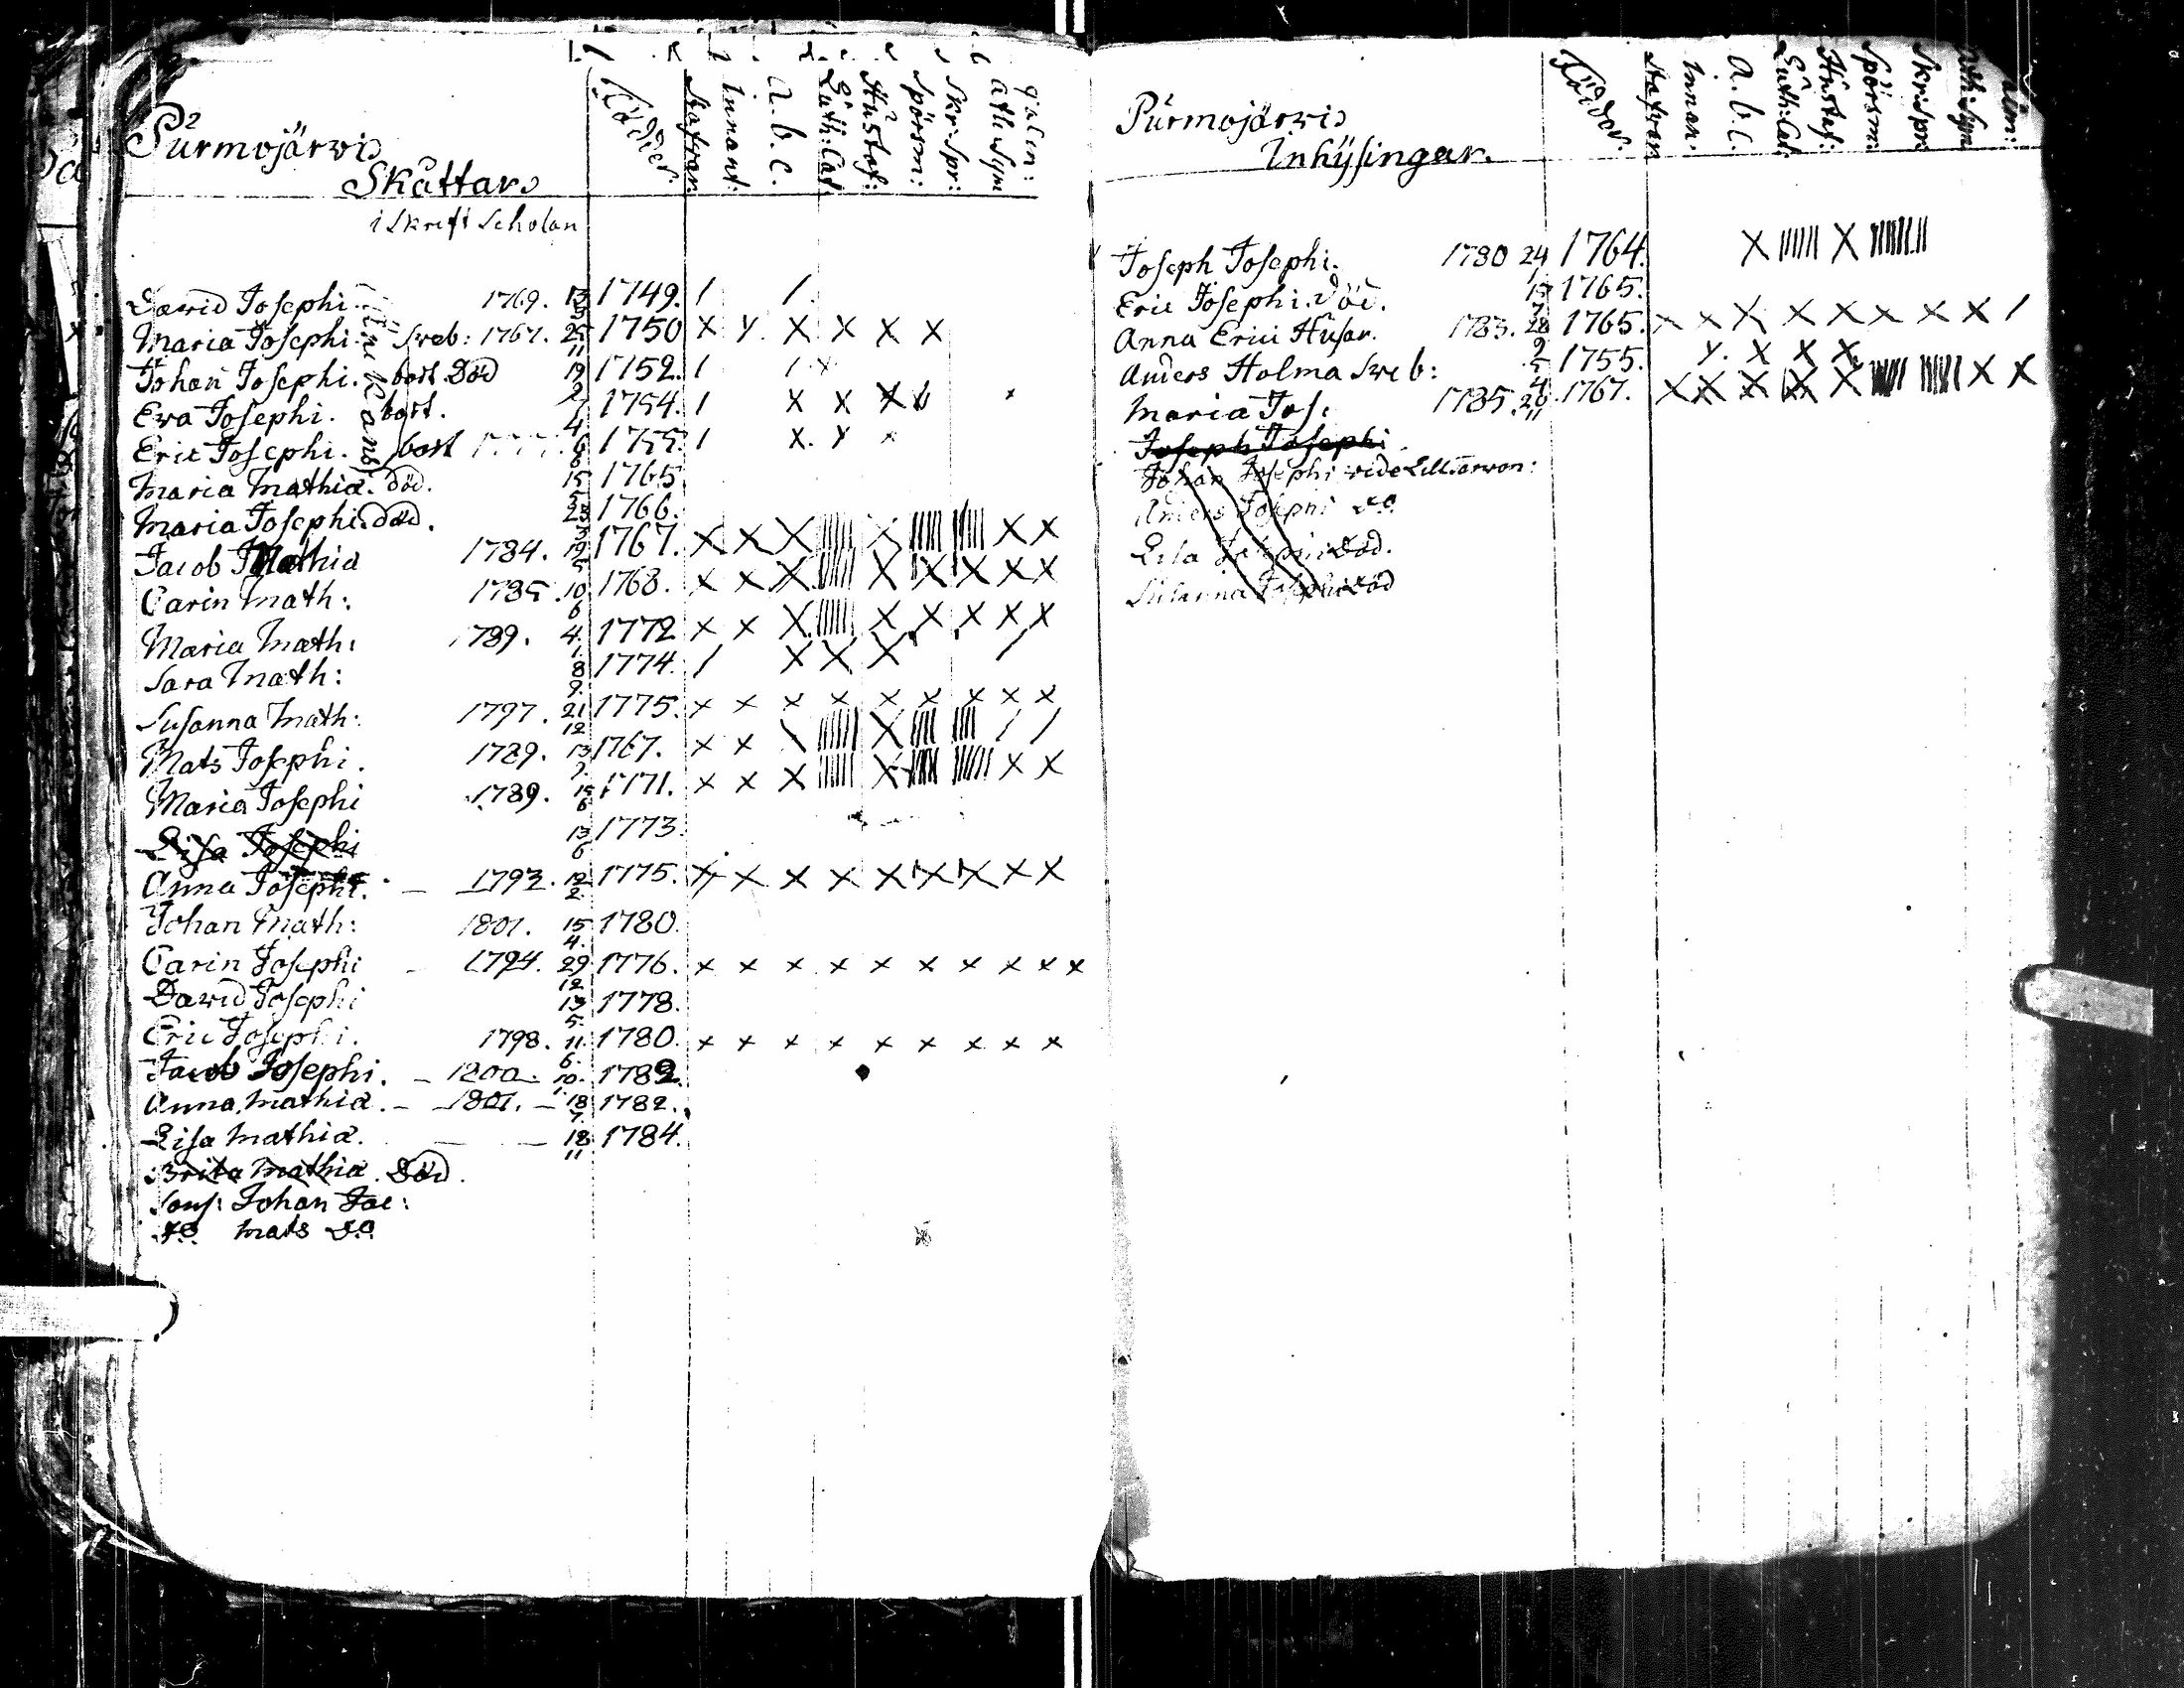 Purmojärvi
Skattar
i Skrift Scholan
Födder.
Stafvan
Innant:
A. b. c.
Luth: Cat:
Hustaf:
Spörsm:
Skr: Spr:
Ath: Sym
David Josephi. 1769. 13 1749. / /.
Maria Josephi. Sveb: 1767. 25/11 1750 X Y. X X X X
Johan Josephi. bort. Död 19/2 1752. / / x
Ewa Josephi. bort. 7/4 1754. / X X X
Eric Josephi. bort 6/8 1755. / X. Y x
Maria Mathiæ. död. 15/5 1765
Maria Josephi. död. 23/3 1766.
Jacob Mathiæ 1784. 19/5 1767. X X X X X X
Carin Math: 1785. 10/6 1768. X X X X X X X X
Maria Math: 1789. 4./1. 1772 X X X X X X X X
Sara Math: 8/9. 1774. / X X X /
Susanna Math: 1797. 21/12 1775. x x x x x x x x x
Mats Josephi. 1789. 13 1767. X X \ X / /
Maria Josephi 1789. 15/6 1771. X X X X X X
Lisa Josephi 13/6 1773.
Anna Josephi. – 1793. 12/2. 1775. X X X X X X X X X
Johan Math: 1801. 15/4. 1780.
Carin Josephi 1794. 29/12 1776. x x x x x x x x x x
David Josephi 13/5. 1778.
Eric Josephi. 1798. 11/6. 1780. x x x x x x x x x
Jacob Josephi. – 1800. 10./1. 1782.
Anna Mathiæ. – 1801. – 18/7. 1782.
Lisa Mathiæ. 18/11 1784.
Brita Mathiæ. Död.
Sons: Johan Jac:
do. Mats do.
Purmojärvi
Inhysingar.
Födder.
Stafvan
Innan:
A. b. c.
Luth: Cat:
Hustaf:
Spörsm:
Skr: Spr:
Ath: Sym
Joseph Josephi. 1780 24/1 1764. X X
Eric Josephi. död. 15/7 1765.
Anna Erici Husar. 1783. 28/2 1765. X X X X X X X X /
Anders Holma Sveb: 5/4 1755. Y. X X X
Maria Jos: 1785. 26/11 1767. X X X X X X X
Joseph Josephi
Johan Josephi vide Lill
Anders Josephi do.
Lisa Josephi död.
Susanna Josephi död